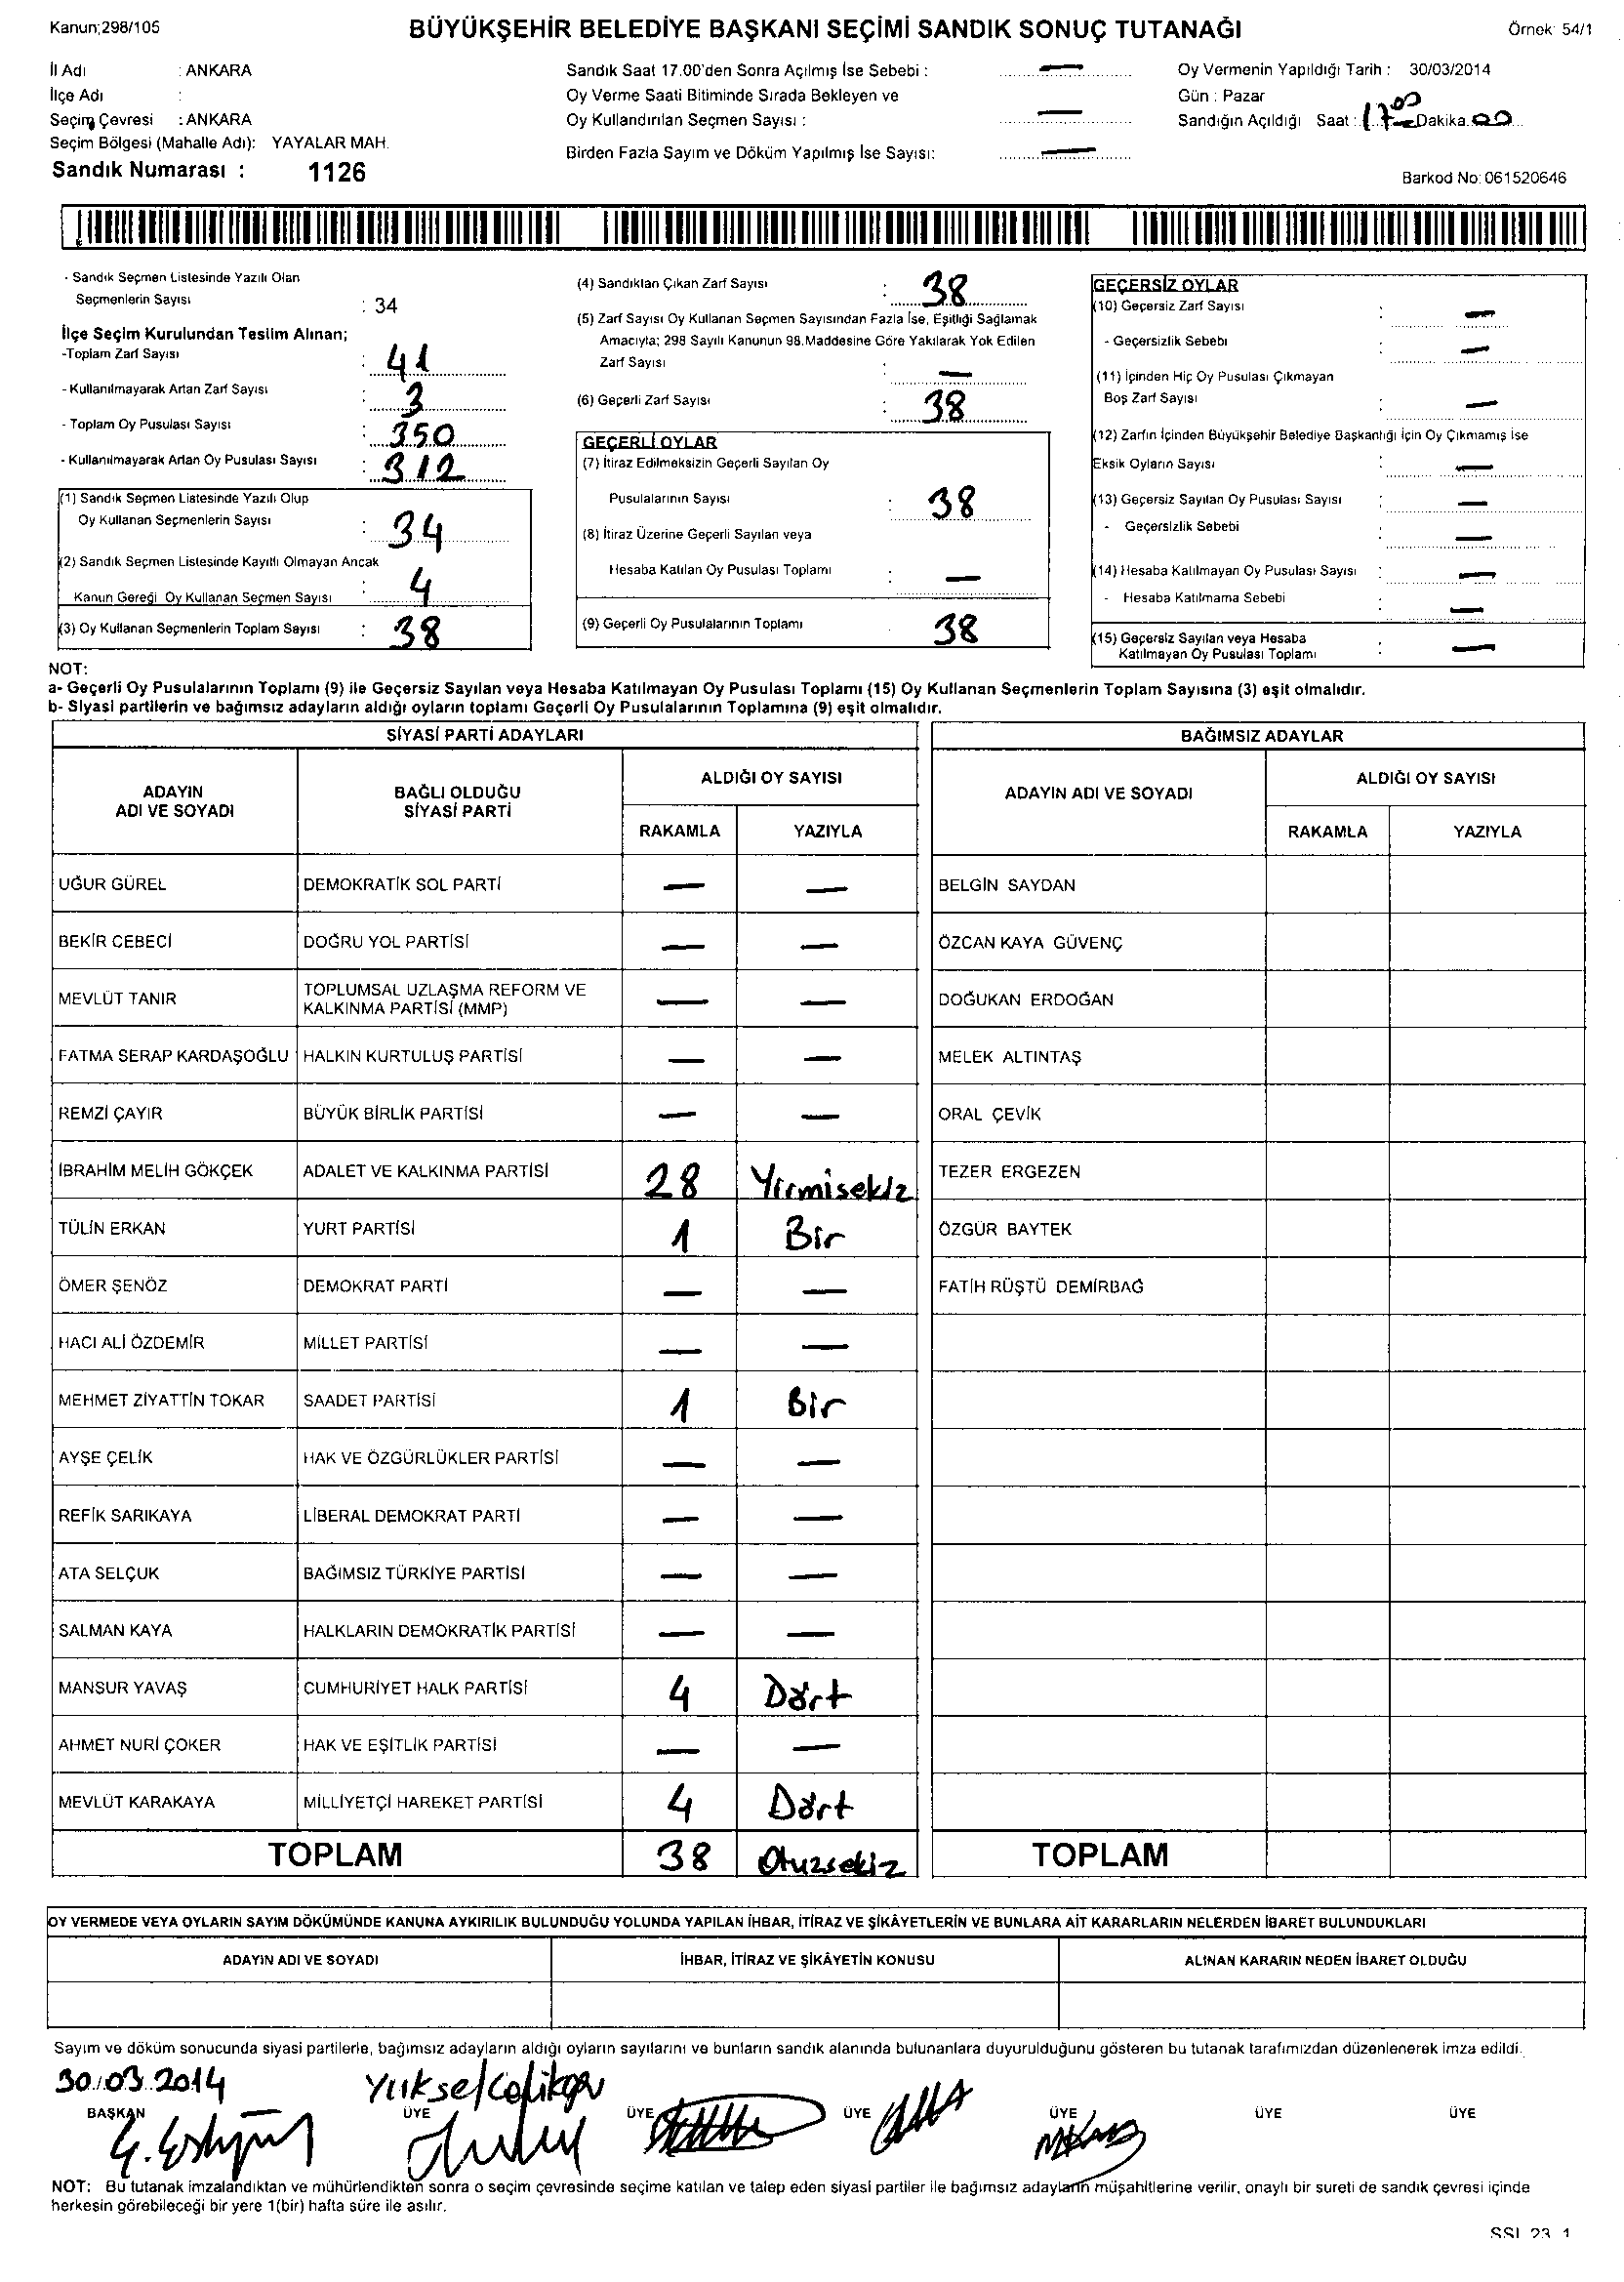 Kanun;298/105
BÜYÜKŞEHİR BELEDİYE BAŞKANI SEÇİMİ SANDIK SONUÇ TUTANAĞI
Örnek: 54/1
İl Adı : ANKARA
İlçe Adı :
Seçim Çevresi : ANKARA
Seçim Bölgesi (Mahalle Adı): YAYALAR MAH.
Sandık Numarası : 1126
Sandık Saat 17.00'den Sonra Açılmış İse Sebebi : —
Oy Verme Saati Bitiminde Sırada Bekleyen ve
Oy Kullandırılan Seçmen Sayısı : —
Birden Fazla Sayım ve Döküm Yapılmış İse Sayısı: —
Oy Vermenin Yapıldığı Tarih : 30/03/2014
Gün : Pazar
Sandığın Açıldığı Saat : 17 00 Dakika 00
Barkod No: 061520646
- Sandık Seçmen Listesinde Yazılı Olan
Seçmenlerin Sayısı : 34
İlçe Seçim Kurulundan Teslim Alınan;
-Toplam Zarf Sayısı : 41
- Kullanılmayarak Artan Zarf Sayısı : 3
- Toplam Oy Pusulası Sayısı : 350
- Kullanılmayarak Artan Oy Pusulası Sayısı : 312
(1) Sandık Seçmen Listesinde Yazılı Olup
Oy Kullanan Seçmenlerin Sayısı : 34
(2) Sandık Seçmen Listesinde Kayıtlı Olmayan Ancak
Kanun Gereği Oy Kullanan Seçmen Sayısı : 4
(3) Oy Kullanan Seçmenlerin Toplam Sayısı : 38
(4) Sandıktan Çıkan Zarf Sayısı : 38
(5) Zarf Sayısı Oy Kullanan Seçmen Sayısından Fazla İse, Eşitliği Sağlamak
Amacıyla; 298 Sayılı Kanunun 98.Maddesine Göre Yakılarak Yok Edilen
Zarf Sayısı : —
(6) Geçerli Zarf Sayısı : 38
GEÇERLİ OYLAR
(7) İtiraz Edilmeksizin Geçerli Sayılan Oy
Pusulalarının Sayısı : 38
(8) İtiraz Üzerine Geçerli Sayılan veya
Hesaba Katılan Oy Pusulası Toplamı : —
(9) Geçerli Oy Pusulalarının Toplamı 38
GEÇERSİZ OYLAR
(10) Geçersiz Zarf Sayısı : —
- Geçersizlik Sebebi : —
(11) İçinden Hiç Oy Pusulası Çıkmayan
Boş Zarf Sayısı : —
(12) Zarfın İçinden Büyükşehir Belediye Başkanlığı İçin Oy Çıkmamış İse
Eksik Oyların Sayısı : —
(13) Geçersiz Sayılan Oy Pusulası Sayısı : —
- Geçersizlik Sebebi : —
(14) Hesaba Katılmayan Oy Pusulası Sayısı : —
- Hesaba Katılmama Sebebi : —
(15) Geçersiz Sayılan veya Hesaba
Katılmayan Oy Pusulası Toplamı : —
NOT:
a- Geçerli Oy Pusulalarının Toplamı (9) ile Geçersiz Sayılan veya Hesaba Katılmayan Oy Pusulası Toplamı (15) Oy Kullanan Seçmenlerin Toplam Sayısına (3) eşit olmalıdır.
b- Siyasi partilerin ve bağımsız adayların aldığı oyların toplamı Geçerli Oy Pusulalarının Toplamına (9) eşit olmalıdır.
SİYASİ PARTİ ADAYLARI
ADAYIN ADI VE SOYADI BAĞLI OLDUĞU SİYASİ PARTİ ALDIĞI OY SAYISI
RAKAMLA YAZIYLA
UĞUR GÜREL DEMOKRATİK SOL PARTİ — —
BEKİR CEBECİ DOĞRU YOL PARTİSİ — —
MEVLÜT TANIR TOPLUMSAL UZLAŞMA REFORM VE KALKINMA PARTİSİ (MMP) — —
FATMA SERAP KARDAŞOĞLU HALKIN KURTULUŞ PARTİSİ — —
REMZİ ÇAYIR BÜYÜK BİRLİK PARTİSİ — —
İBRAHİM MELİH GÖKÇEK ADALET VE KALKINMA PARTİSİ 28 Yirmisekiz
TÜLİN ERKAN YURT PARTİSİ 1 Bir
ÖMER ŞENÖZ DEMOKRAT PARTİ — —
HACI ALİ ÖZDEMİR MİLLET PARTİSİ — —
MEHMET ZİYATTİN TOKAR SAADET PARTİSİ 1 Bir
AYŞE ÇELİK HAK VE ÖZGÜRLÜKLER PARTİSİ — —
REFİK SARIKAYA LİBERAL DEMOKRAT PARTİ — —
ATA SELÇUK BAĞIMSIZ TÜRKİYE PARTİSİ — —
SALMAN KAYA HALKLARIN DEMOKRATİK PARTİSİ — —
MANSUR YAVAŞ CUMHURİYET HALK PARTİSİ 4 Dört
AHMET NURİ ÇOKER HAK VE EŞİTLİK PARTİSİ — —
MEVLÜT KARAKAYA MİLLİYETÇİ HAREKET PARTİSİ 4 Dört
TOPLAM 38 Otuzsekiz
BAĞIMSIZ ADAYLAR
ADAYIN ADI VE SOYADI ALDIĞI OY SAYISI
RAKAMLA YAZIYLA
BELGİN SAYDAN
ÖZCAN KAYA GÜVENÇ
DOĞUKAN ERDOĞAN
MELEK ALTINTAŞ
ORAL ÇEVİK
TEZER ERGEZEN
ÖZGÜR BAYTEK
FATİH RÜŞTÜ DEMİRBAĞ
TOPLAM
OY VERMEDE VEYA OYLARIN SAYIM DÖKÜMÜNDE KANUNA AYKIRILIK BULUNDUĞU YOLUNDA YAPILAN İHBAR, İTİRAZ VE ŞİKÂYETLERİN VE BUNLARA AİT KARARLARIN NELERDEN İBARET BULUNDUKLARI
ADAYIN ADI VE SOYADI İHBAR, İTİRAZ VE ŞİKÂYETİN KONUSU ALINAN KARARIN NEDEN İBARET OLDUĞU
Sayım ve döküm sonucunda siyasi partilerle, bağımsız adayların aldığı oyların sayılarını ve bunların sandık alanında bulunanlara duyurulduğunu gösteren bu tutanak tarafımızdan düzenlenerek imza edildi.
30.03.2014
BAŞKAN ÜYE ÜYE ÜYE ÜYE ÜYE ÜYE
NOT: Bu tutanak imzalandıktan ve mühürlendikten sonra o seçim çevresinde seçime katılan ve talep eden siyasi partiler ile bağımsız adayların müşahitlerine verilir, onaylı bir sureti de sandık çevresi içinde
herkesin görebileceği bir yere 1(bir) hafta süre ile asılır.